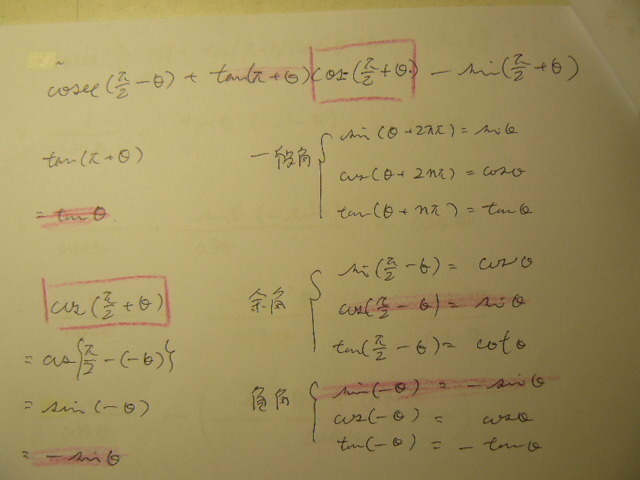 cosec(π/2 - θ) + tan(π + θ)cos(π/2 + θ) - sin(π/2 + θ)
tan(π + θ)
= tan θ
一般角
sin(θ + 2nπ) = sin θ
cos(θ + 2nπ) = cos θ
tan(θ + nπ) = tan θ
cos(π/2 + θ)
= cos{π/2 - (-θ)}
= sin(-θ)
= - sin θ
余角
sin(π/2 - θ) = cos θ
cos(π/2 - θ) = sin θ
tan(π/2 - θ) = cot θ
負角
sin(-θ) = - sin θ
cos(-θ) = cos θ
tan(-θ) = - tan θ